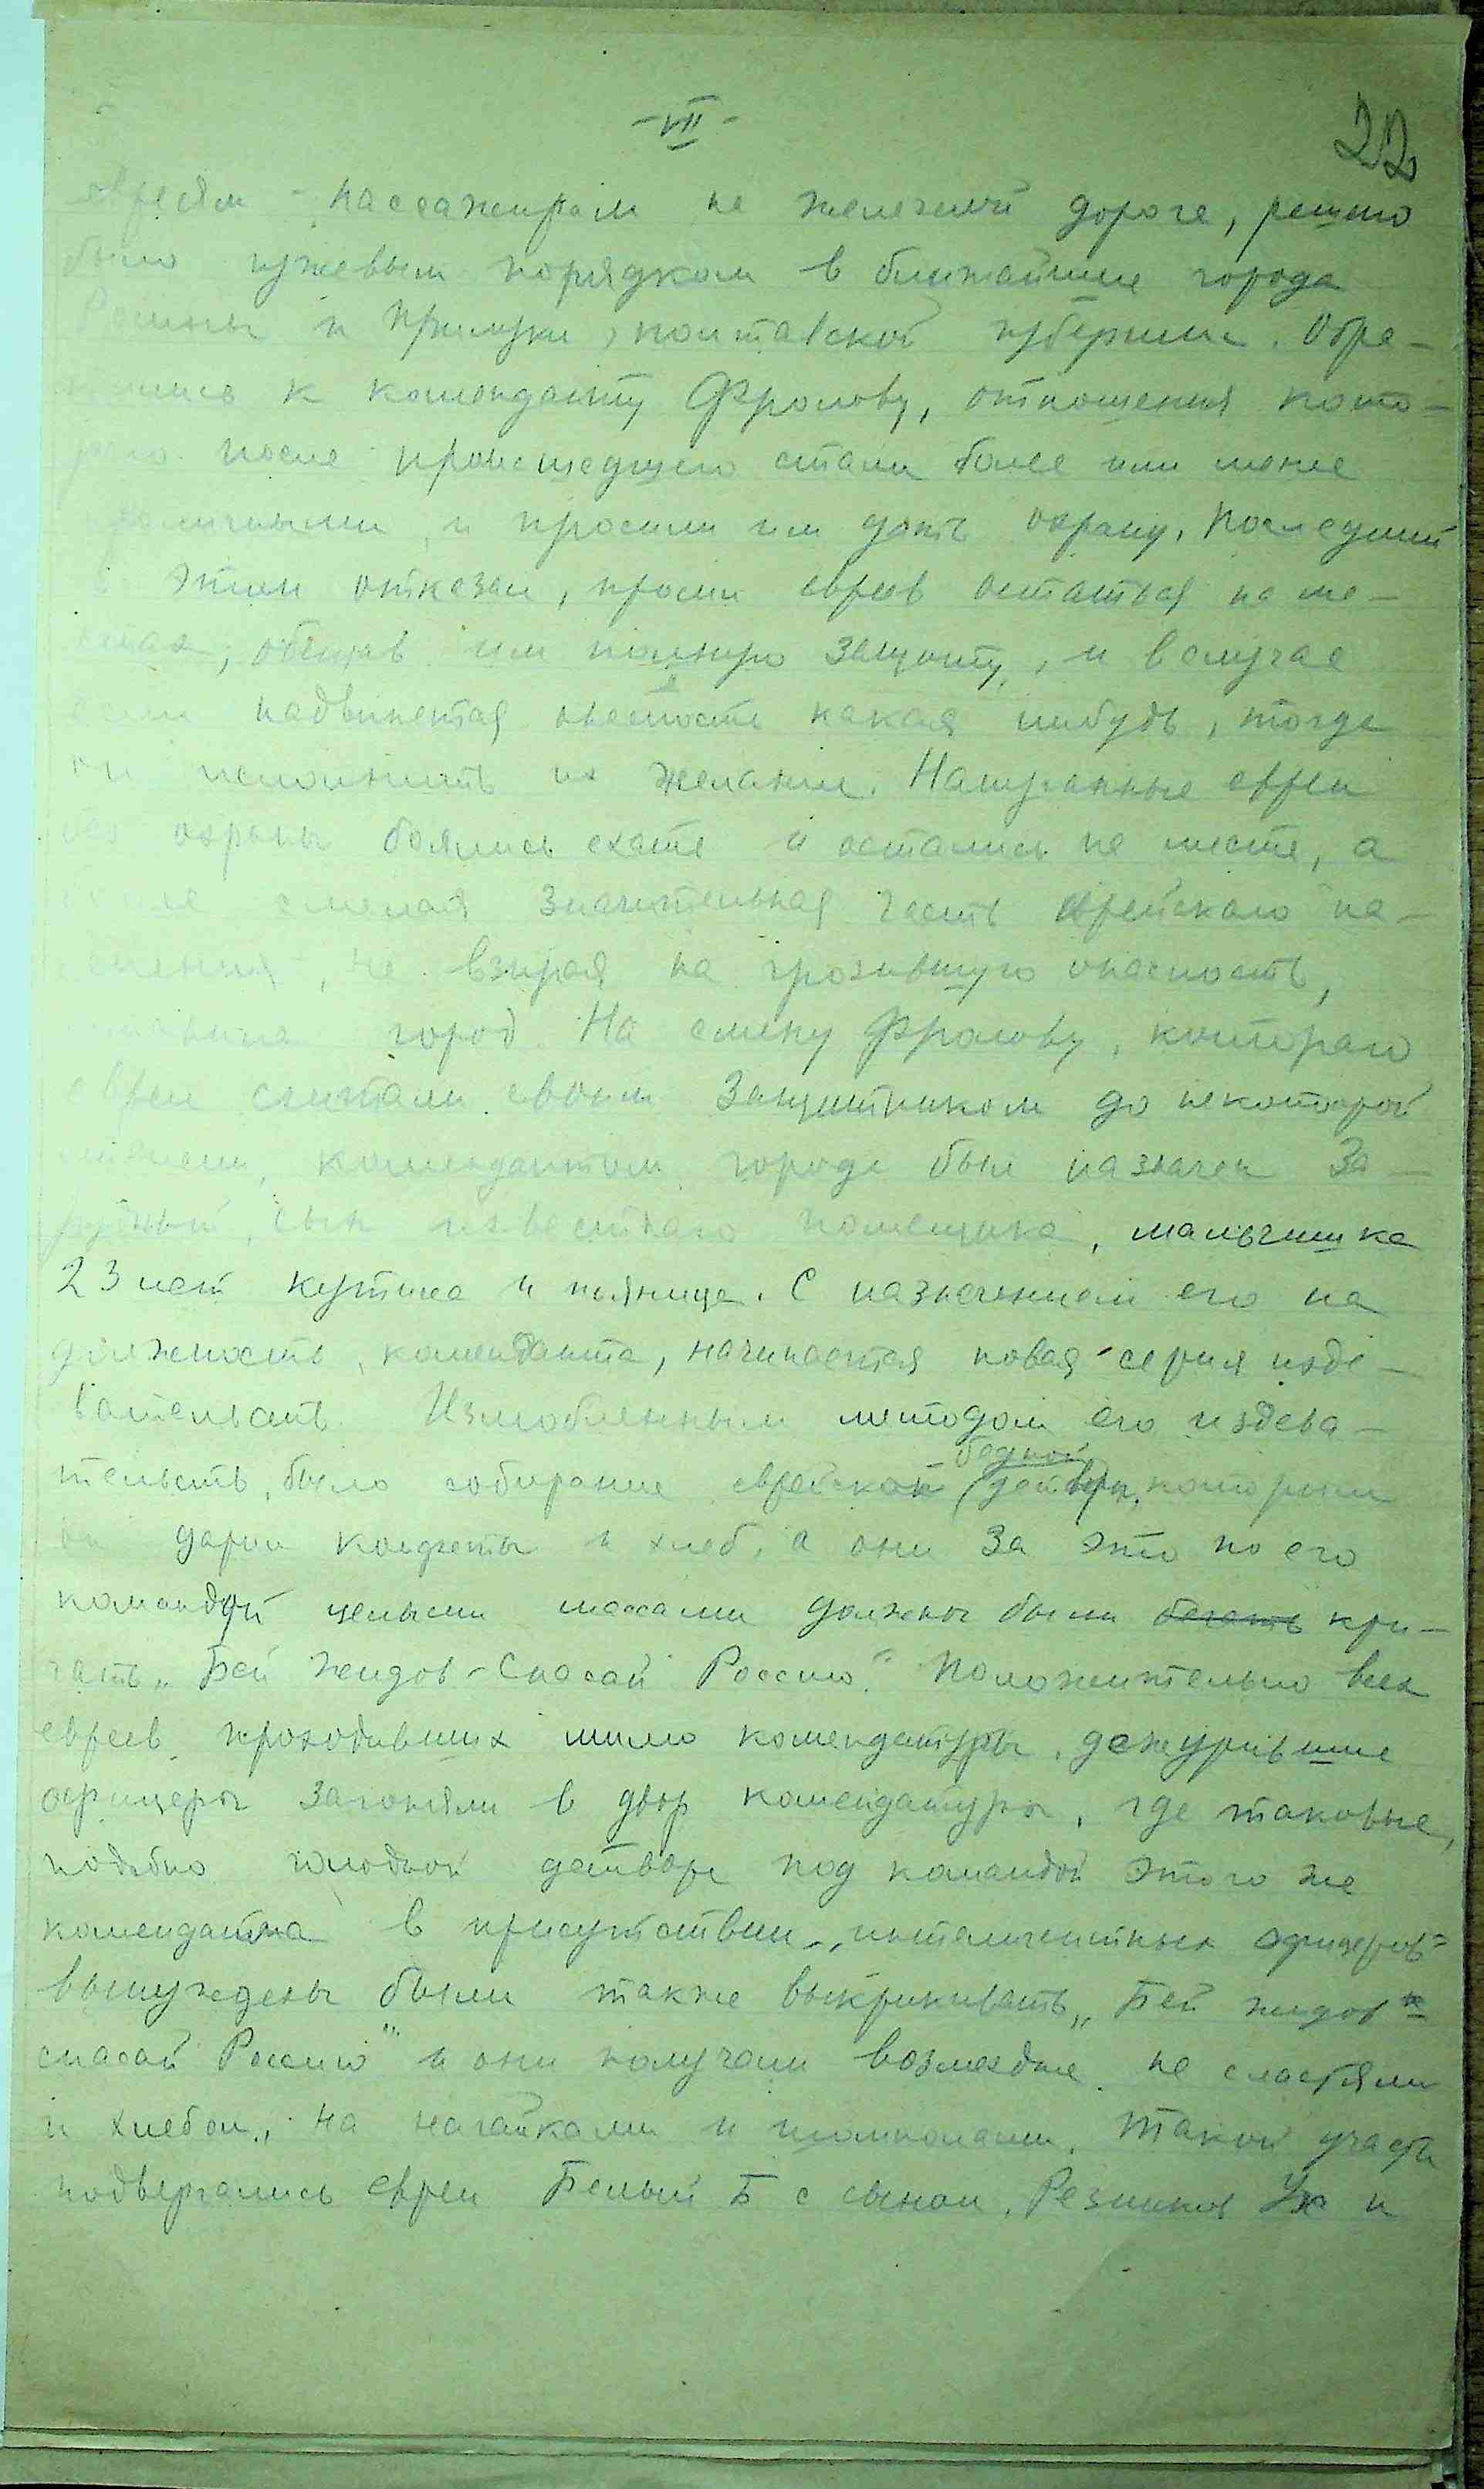 -VII-
22
евреям - пассажирам на железной дороге, решено
было гужевым порядком в ближайшие города
Ромны и Прилуки, полтавской губернии. Обра-
тились к коменданту Фролову, отношения кото-
рого после происшедшего стали более или менее
и просили им дать охрану, последний
в этом отказал, просил евреев остаться на ме-
стах, обещав им полную защиту, и в случае
если надвинется опасность какая нибудь, тогда
он исполнить их желание. Напуганные евреи
без охраны боялись ехать и остались на месте, а
более смелая значительная часть еврейского на-
селения, не взирая на грозившую опасность,
оставила город. На смену Фролову, которого
евреи считали своим защитником до некоторой
степени, комендантом города был назначен За-
рудный, сын известного помещика, мальчишка
23 лет кутила и пьяница. С назначением его на
должность, коменданта, начинается новая серия изде-
вательств. Излюбленным методом его издева-
тельств, было собирание еврейской (бедной) детворы, которым
он дарил конфеты и хлеб, а они за это по его
командой целыми массами должны были бегать кри-
чать „Бей жидов - Спасай Россию". Положительно всех
евреев проходивших мимо комендатуры, дежурившие
офицеры загоняли в двор комендатуры, где таковые,
подобно голодной детворе под командой этого же
коменданта в присутствии „интелигентных офицеров"
вынуждены были также выкрикивать „Бей жидов
спасай Россию" и они получали возмездие не сластями
и хлебом, на нагайками и шомполами. Такой участи
подвергались евреи Белый Б с сыном, Резников Ух и